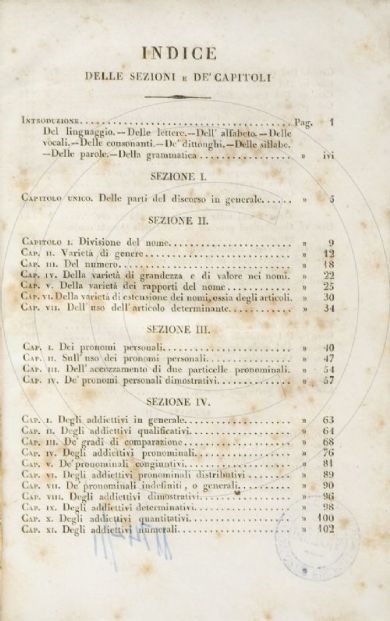 INDICE
DELLE SEZIONI E DE' CAPITOLI
INTRODUZIONE. Pag. 1
Del linguaggio.—Delle lettere.—Dell' alfabeto.—Delle
vocali.—Delle consonanti.—De' dittonghi.—Delle sillabe.
—Delle parole.—Della grammatica » ivi
SEZIONE I.
CAPITOLO UNICO. Delle parti del discorso in generale. » 5
SEZIONE II.
CAPITOLO I. Divisione del nome. » 9
CAP. II. Varietà di genere » 12
CAP. III. Del numero » 18
CAP. IV. Della varietà di grandezza e di valore nei nomi. » 22
CAP. V. Della varietà dei rapporti del nome » 25
CAP. VI. Della varietà di estensione dei nomi, ossia degli articoli. » 30
CAP. VII. Dell' uso dell' articolo determinante. » 34
SEZIONE III.
CAP. I. Dei pronomi personali. » 40
CAP. II. Sull' uso dei pronomi personali. » 47
CAP. III. Dell' accozzamento di due particelle pronominali. » 54
CAP. IV. De' pronomi personali dimostrativi. » 57
SEZIONE IV.
CAP. I. Degli addiettivi in generale. » 63
CAP. II. Degli addiettivi qualificativi. » 64
CAP. III. De' gradi di comparazione » 68
CAP. IV. Degli addiettivi pronominali. » 76
CAP. V. De' pronominali congiuntivi. » 81
CAP. VI. Degli addiettivi pronominali distributivi » 89
CAP. VII. De' pronominali indefiniti, o generali. » 90
CAP. VIII. Degli addiettivi dimostrativi. » 96
CAP. IX. Degli addiettivi determinativi. » 98
CAP. X. Degli addiettivi quantitativi. » 100
CAP. XI. Degli addiettivi numerali. » 102